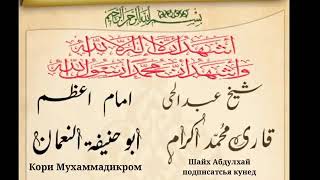 بسم الله الرحمن الرحيم
اشهد ان لا اله الا الله
واشهد ان محمد رسول الله
شیخ عبدالحی امام اعظم
قاری محمد اکرام ابو حنیفة النعمان
Кори Мухаммадикром
Шайх Абдулхай
подписатсья кунед